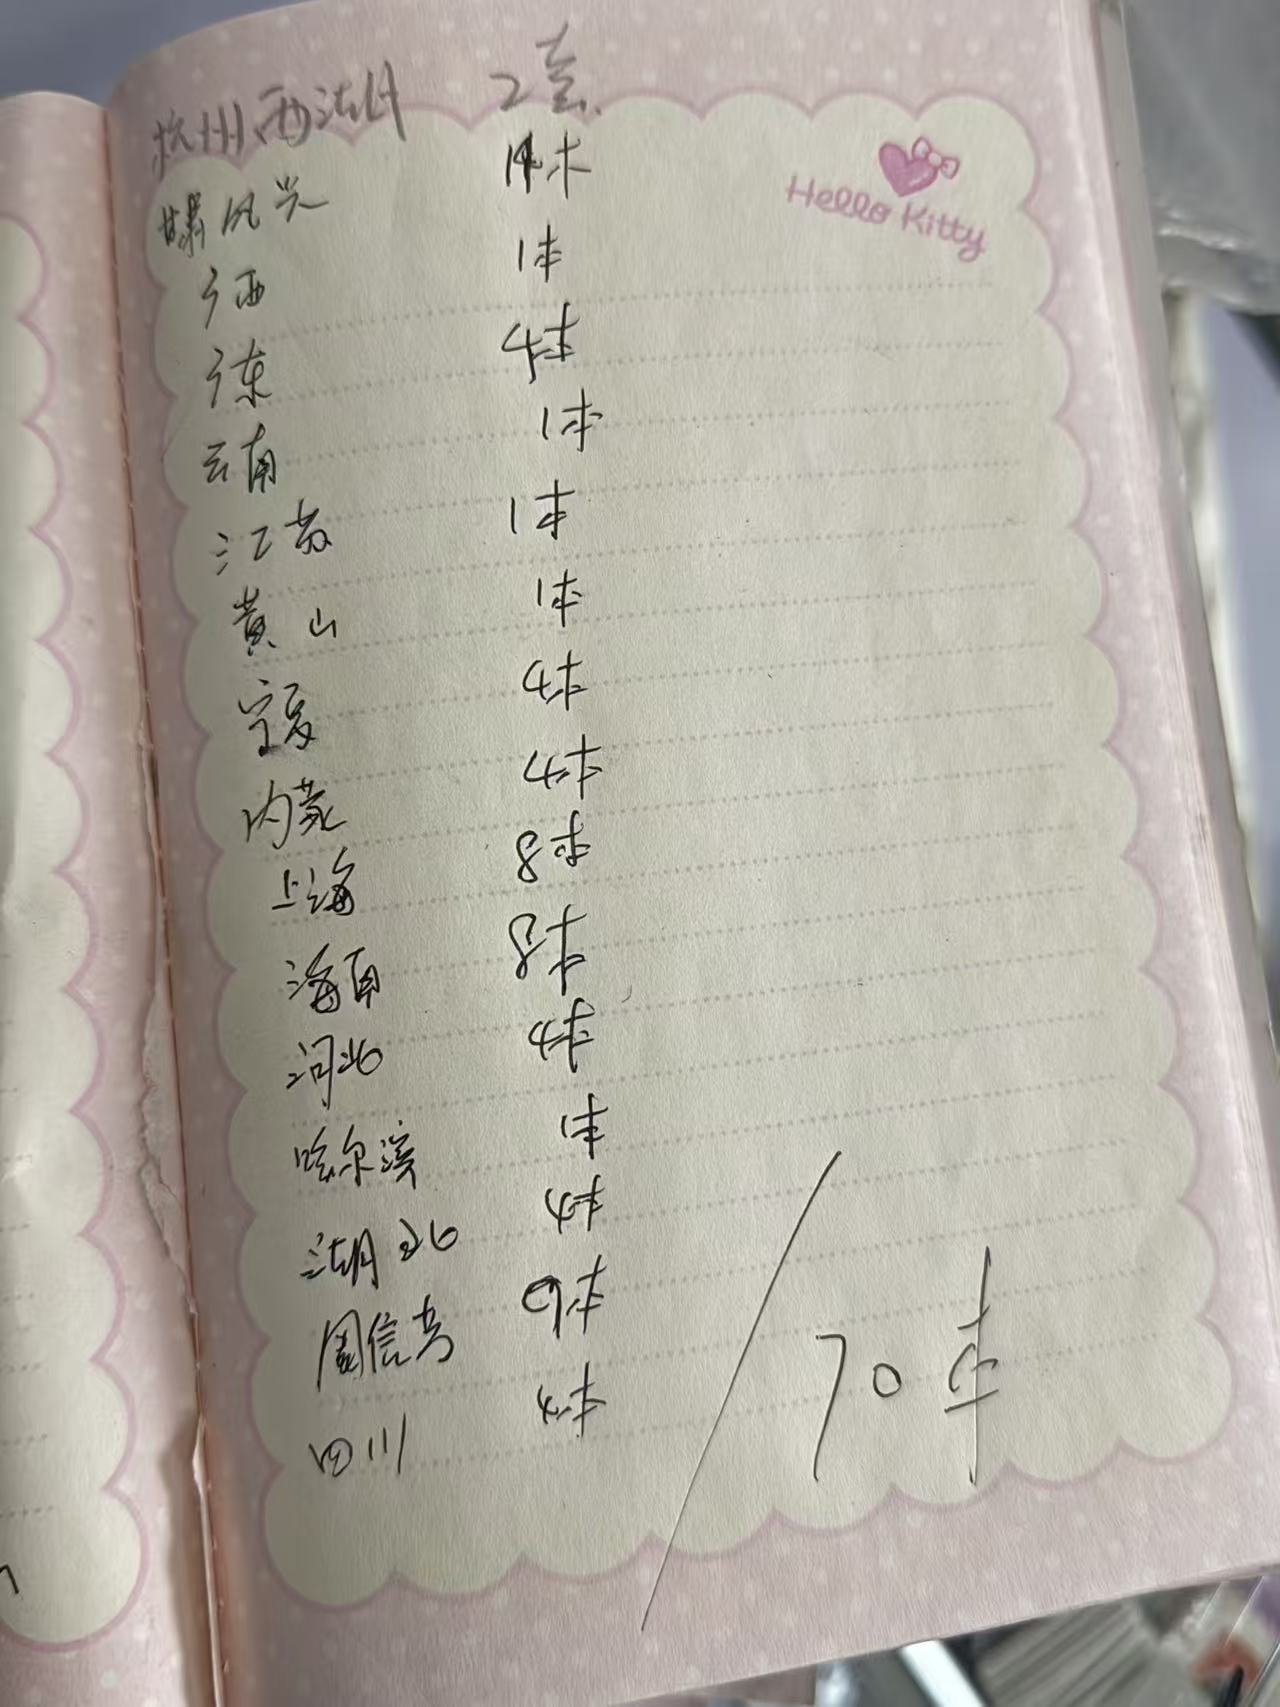 杭州西湖 2套
Hello Kitty
甘肃 本
广西 1本
广东 4本
云南 1本
江苏 1本
黄山 1本
宁夏 4本
内蒙 4本
上海 8本
海南 8本
河北 4本
哈尔滨 1本
湖北 4本
周信芳 9本
四川 4本
70本